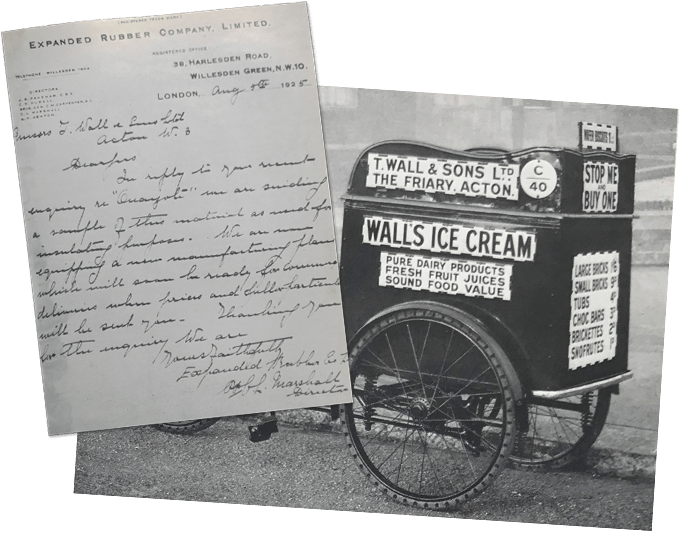 (REGISTERED TRADE MARK)
EXPANDED RUBBER COMPANY, LIMITED.
REGISTERED OFFICE
38, HARLESDEN ROAD,
WILLESDEN GREEN, N.W.10.
DIRECTORS
LONDON, Aug 8th 1925
Messrs T. Wall & Sons Ltd
Acton W. 3
Dearsirs
In reply to your recent
enquiry re "Onazote" we are sending
a sample of this material as used for
insulating purposes. We are now
equipping a new manufacturing plant
which will soon be ready for commercial
deliveries when prices and full particulars
will be sent you. Thanking you
for the enquiry We are
Yours faithfully
Expanded Rubber Co Ltd
Marshall
Director
WAFER BISCUITS
T. WALL & SONS LTD
THE FRIARY, ACTON.
C
40
STOP ME
AND
BUY ONE
WALL'S ICE CREAM
PURE DAIRY PRODUCTS
FRESH FRUIT JUICES
SOUND FOOD VALUE
LARGE BRICKS 1/6
SMALL BRICKS 9D
TUBS 4D
CHOC BARS 3D
BRICKETTES 2D
SNOFRUTES 1D